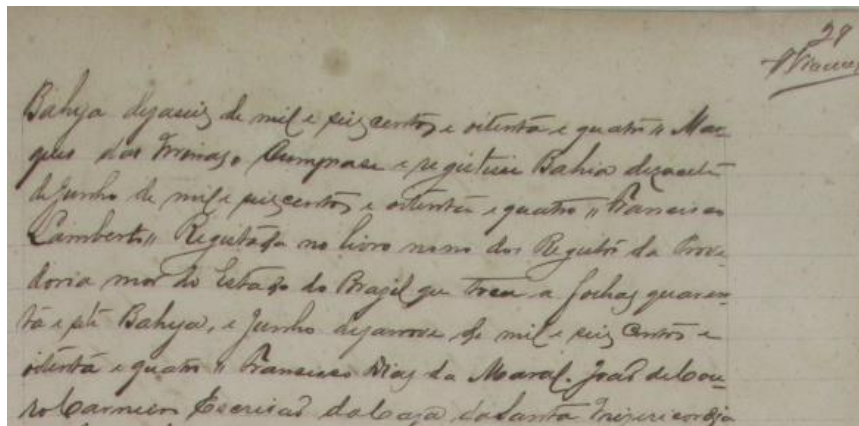 29
Vianna
Bahya dezaseis de mil e seiscentos e oitenta e quatro " Mar
ques das Minas, Cumprase e registese Bahia dezasete
de Junho de mil e seiscentos e oitenta e quatro " Francisco
Lamberto " Registada no livro nono dos Registos da Prove
doria mor do Estado do Brazil que toca a folhas quaren
ta e sete Bahya, e Junho dezanove de mil e seis centos e
oitenta e quatro " Francisco Dias da Maral. João de Cou
ro Carneiro Escrivaõ da Caza da Santa Mizericordia